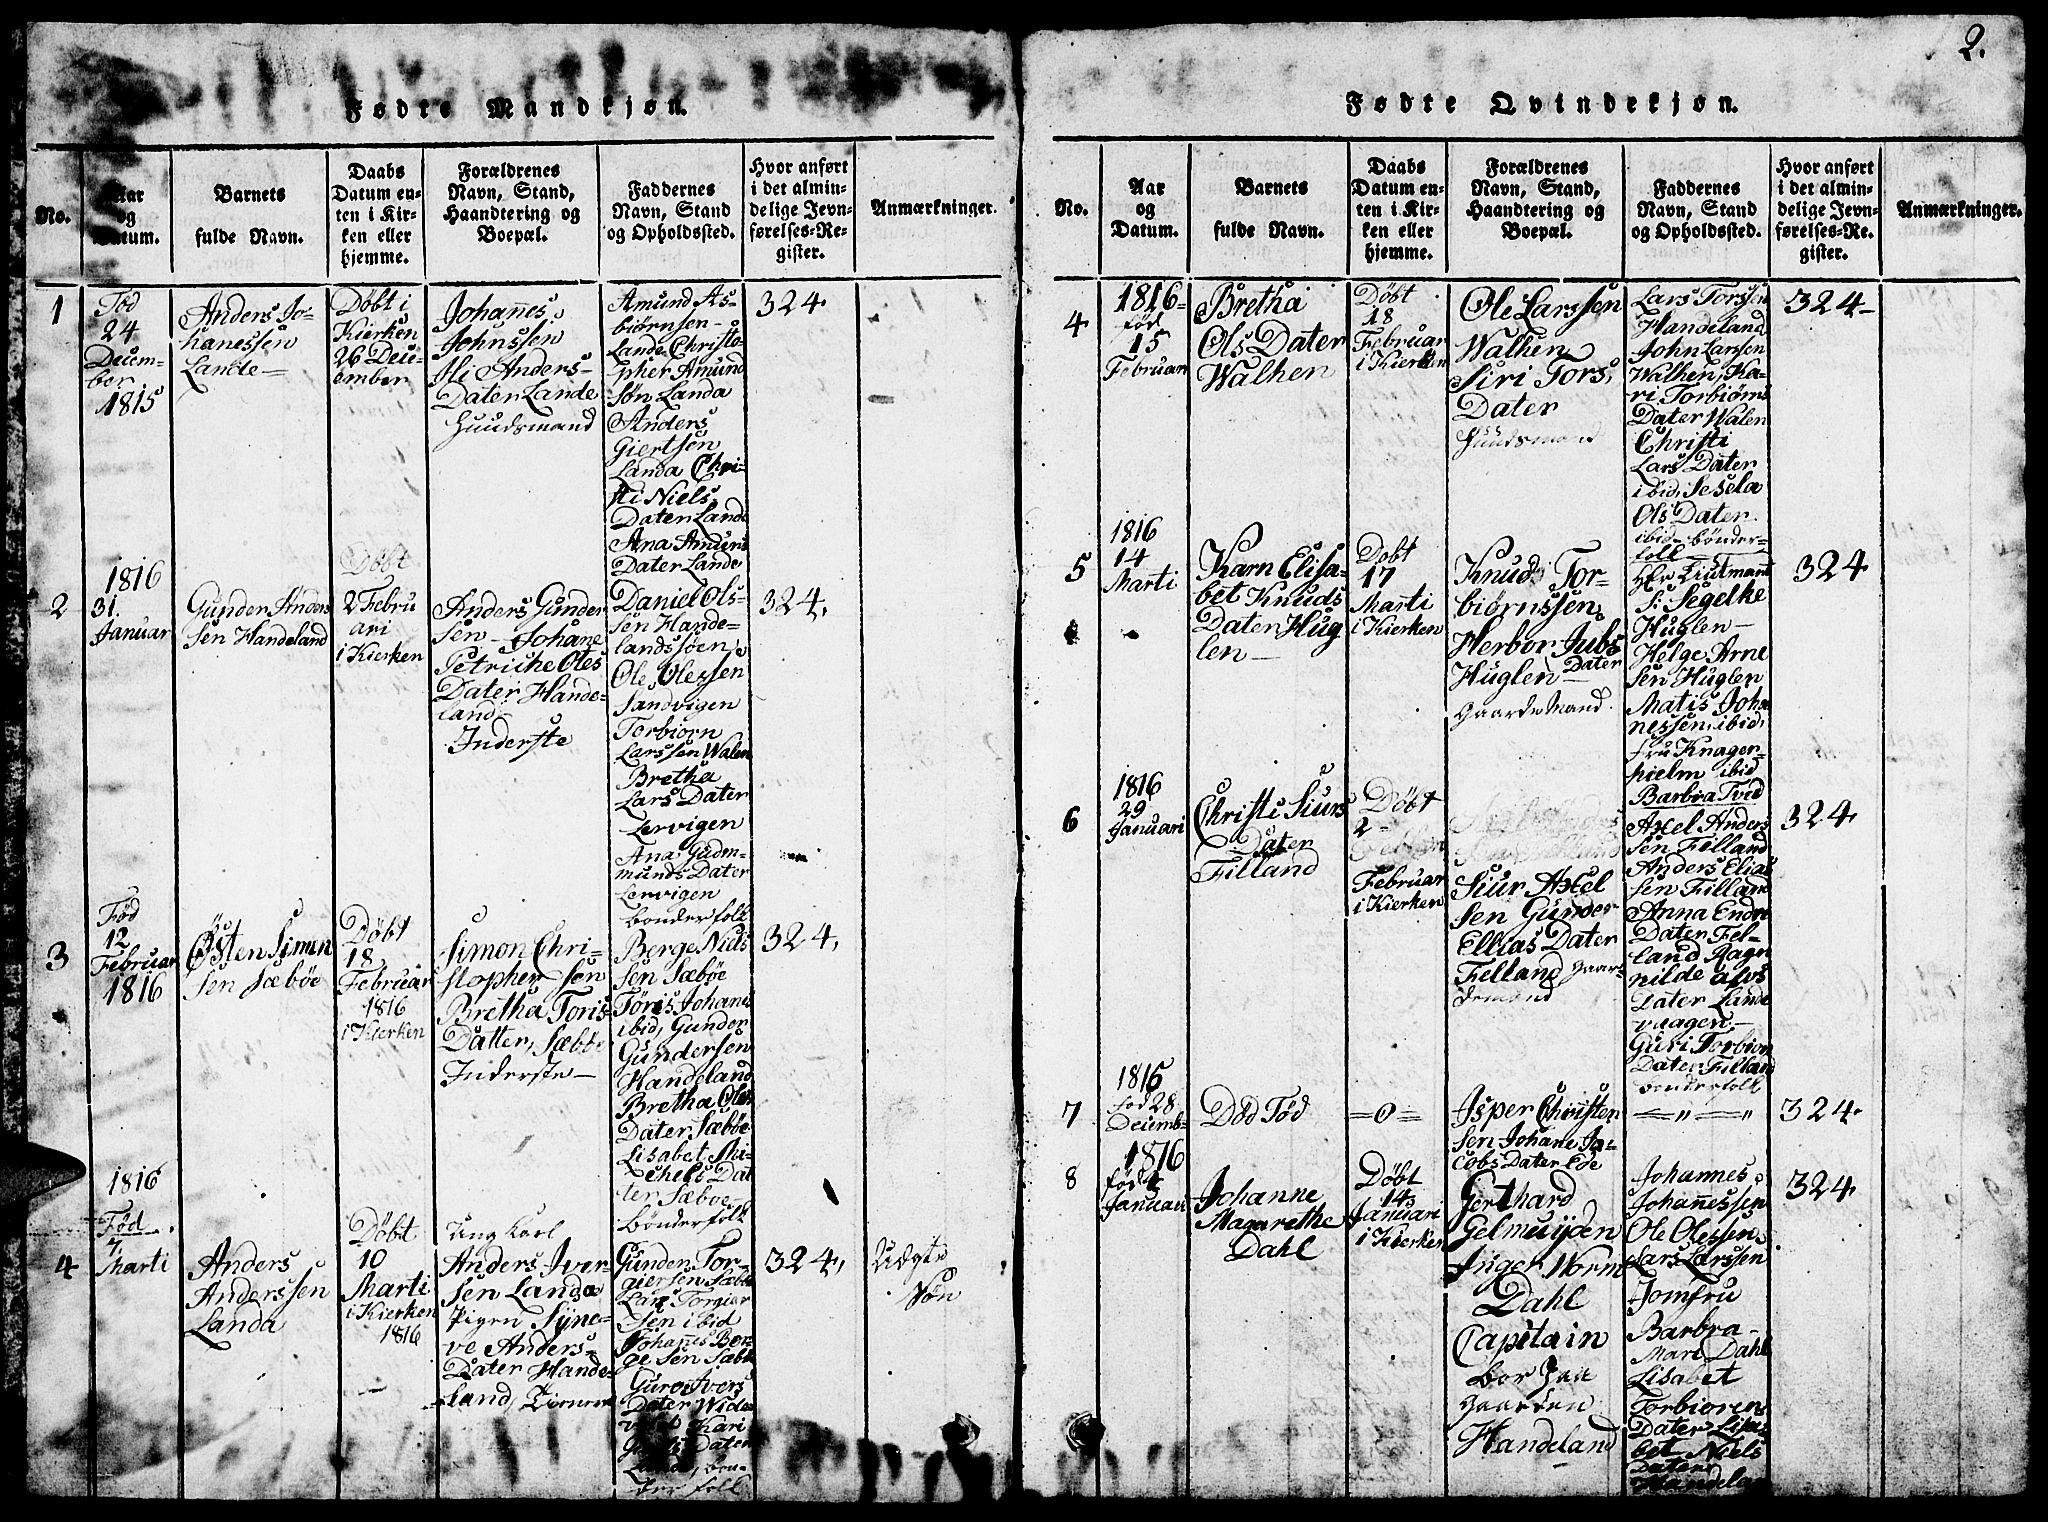 2.
Fødte Mandkjøn.
No.
Aar
og
Datum.
Barnets
fulde Navn.
Daabs
Datum en-
ten i Kir-
ken eller
hjemme.
Forældrenes
Navn, Stand,
Haandtering og
Boepæl.
Faddernes
Navn, Stand
og Opholdssted.
Hvor anført
i det almin-
delige Jevn-
førelses-Re-
gister.
Anmærkninger.
1
Fød
24
Decem-
ber
1815
Anders Jo-
hanessen
Lande
Døbt i
Kierken
26 Dec-
ember
Johannes
Johnssen
Anders-
Dater Lande
Huusmand
Amund As-
biørnsen
Lande Christo-
pher Amund
søn Landa
Anders
Giertsen
Landa Chri-
sti Niels
Dater Lande
Ana Anders
Dater Lande
324.
2
1816
31.
Januar
Gunder Anders
sen Handeland
Døbt
2 Febru
ari
i Kierken
Anders Gunder
sen Johane
Petriche Oles
Dater Hande-
land
Inderste
Daniel Ols-
sen Hande-
landssøen
Ole Olessen
Sandvigen
Torbiørn
Larssen Walen
Bretha
Lars Dater
Lervigen
Ana Gudm-
munds Dater
Lervigen
bønderfolk
324.
3
Fød
12
Februar
1816
Østen Simen
sen Sæbøe
Døbt
18
Februar
1816
i Kierken
Simon Chri-
stophersen
Bretha Toris
Datter, Sæbøe
Inderste
Berge Niels
sen Sæbøe
Tøris Johanes
ibid, Gunder
Gundersen
Handeland
Bretha Oles
Dater Sæbøe
Lisabet Mi-
chels Dat
ter Sæboe
bønderfolk
324.
4
1816
Fød
7.
Marti
Anders
Anderssen
Landa
Døbt
10
Marti
i Kierken
1816
Ung Karl
Anders Iver-
sen Landa
Pigen Syne-
ve Anders-
Dater Hande-
land
Gunder Tor-
giersen Sæbø
Lars Torgier
sen ibid
Johanes Bor-
ge sen Sæbø
Guro Ivers
Dater
Kari
Dater
bøn-
der folk
324.
Udgte
Søn
Fødte Qvindekjøn.
No.
Aar
og
Datum.
Barnets
fulde Navn.
Daabs
Datum en-
ten i Kir-
ken eller
hjemme.
Forældrenes
Navn, Stand,
Haandtering og
Boepæl.
Faddernes
Navn, Stand
og Opholdssted.
Hvor anført
i det almin-
delige Jevn-
førelses-Re-
gister.
Anmærkninger.
4
1816
fød
15
Februar
Bretha
Ols Dater
Walhen
Døbt
18
Februar
i Kierken
Ole Larssen
Walhen
Siri Tors
Dater
Huusmand
Lars Torssen
Handeland
John Larssen
Walhen, Ka-
ri Torbiørns
Dater Walen
Christi
Lars Dater
ibid, Sesela
Ols Dater
ibid bønder-
folk
324
5
1816
14
Marti
Karn Elisa-
bet Knuds
Dater Hug
len
Døbt
17
Marti
i Kierken
Knud Tor-
biørnssen
Herbor Jubs
Dater
Huglen
Gaardemand.
Hr Liutmant
S: Segelke
Huglen
Helge Arne
sen Huglen
Matis Joha
nessen ibid,
fru Knagen-
hielm ibid
Barbra Tvid
324
6
1816
29
Januari
Christi Siurs
Dater
Filland
Døbt
2
Februar
i Kierken
Siur Axel
sen Gunder
Ellias Dater
Felland Gaar-
demand
Axel Anders
sen Filland
Anders Elias
sen Filland
Anna Endre
Dater Fel-
land Ragn
nilde
Dater Lande
vaagen
Guri Torbiørn
Dater Filland
bønderfolk
324.
7
1815
fød 28
Decemb-
Død Fød
=0=
Jsper Christen
sen Johane Ja-
cobs Dater Eje
="="
324.
8
1816
fød 4
Januari
Johanne
Magarethe
Dahl
Døbt
14
Januari
i Kierken
Gerthard
Gelmuijden
Inger Worm
Dahl
Capitain
bor paa
Gaarden
Handeland
Johannes
Johannessen
Ole Olessen
Lars Larssen
Jomfru
Barbra
Mari Dahl
Lisabet
Torbioren
Dater Lisa
bet Niels
Dater
Handeland
324.